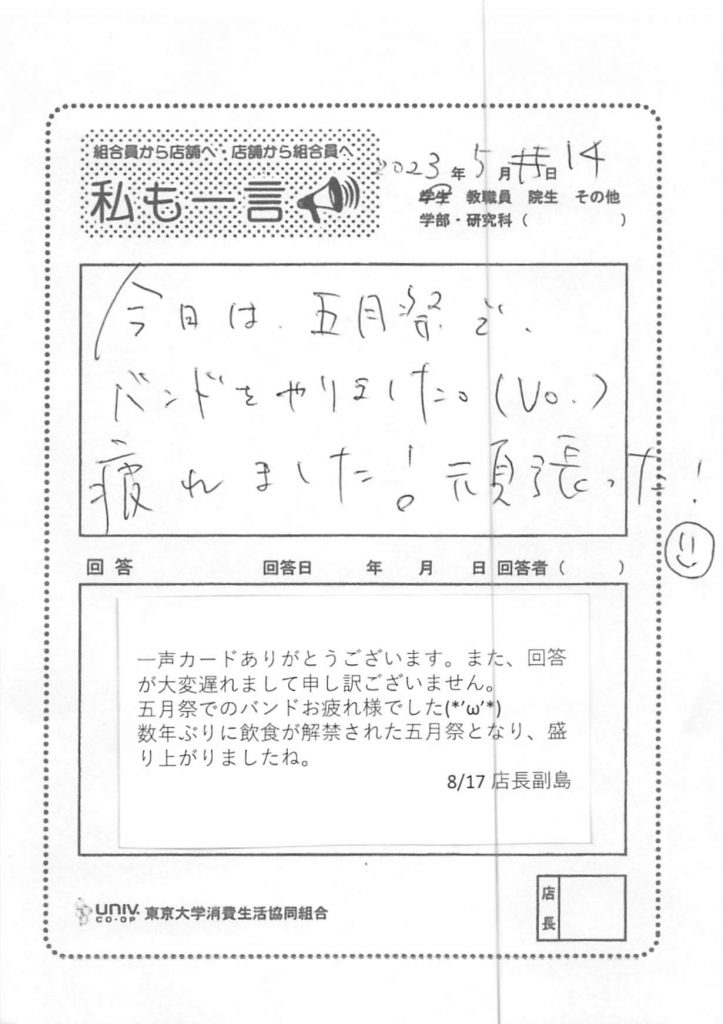 組合員から店舗へ・店舗から組合員へ
私も一言
2023年5月14日
学生 教職員 院生 その他
学部・研究科（ ）
今日は、五月祭で、
バンドをやりました。(Vo.)
疲れました！頑張った！
回答 回答日 年 月 日 回答者（ ）
一声カードありがとうございます。また、回答
が大変遅れまして申し訳ございません。
五月祭でのバンドお疲れ様でした(*'ω'*)
数年ぶりに飲食が解禁された五月祭となり、盛
り上がりましたね。
8/17 店長副島
UNIV.
CO-OP
東京大学消費生活協同組合
店長